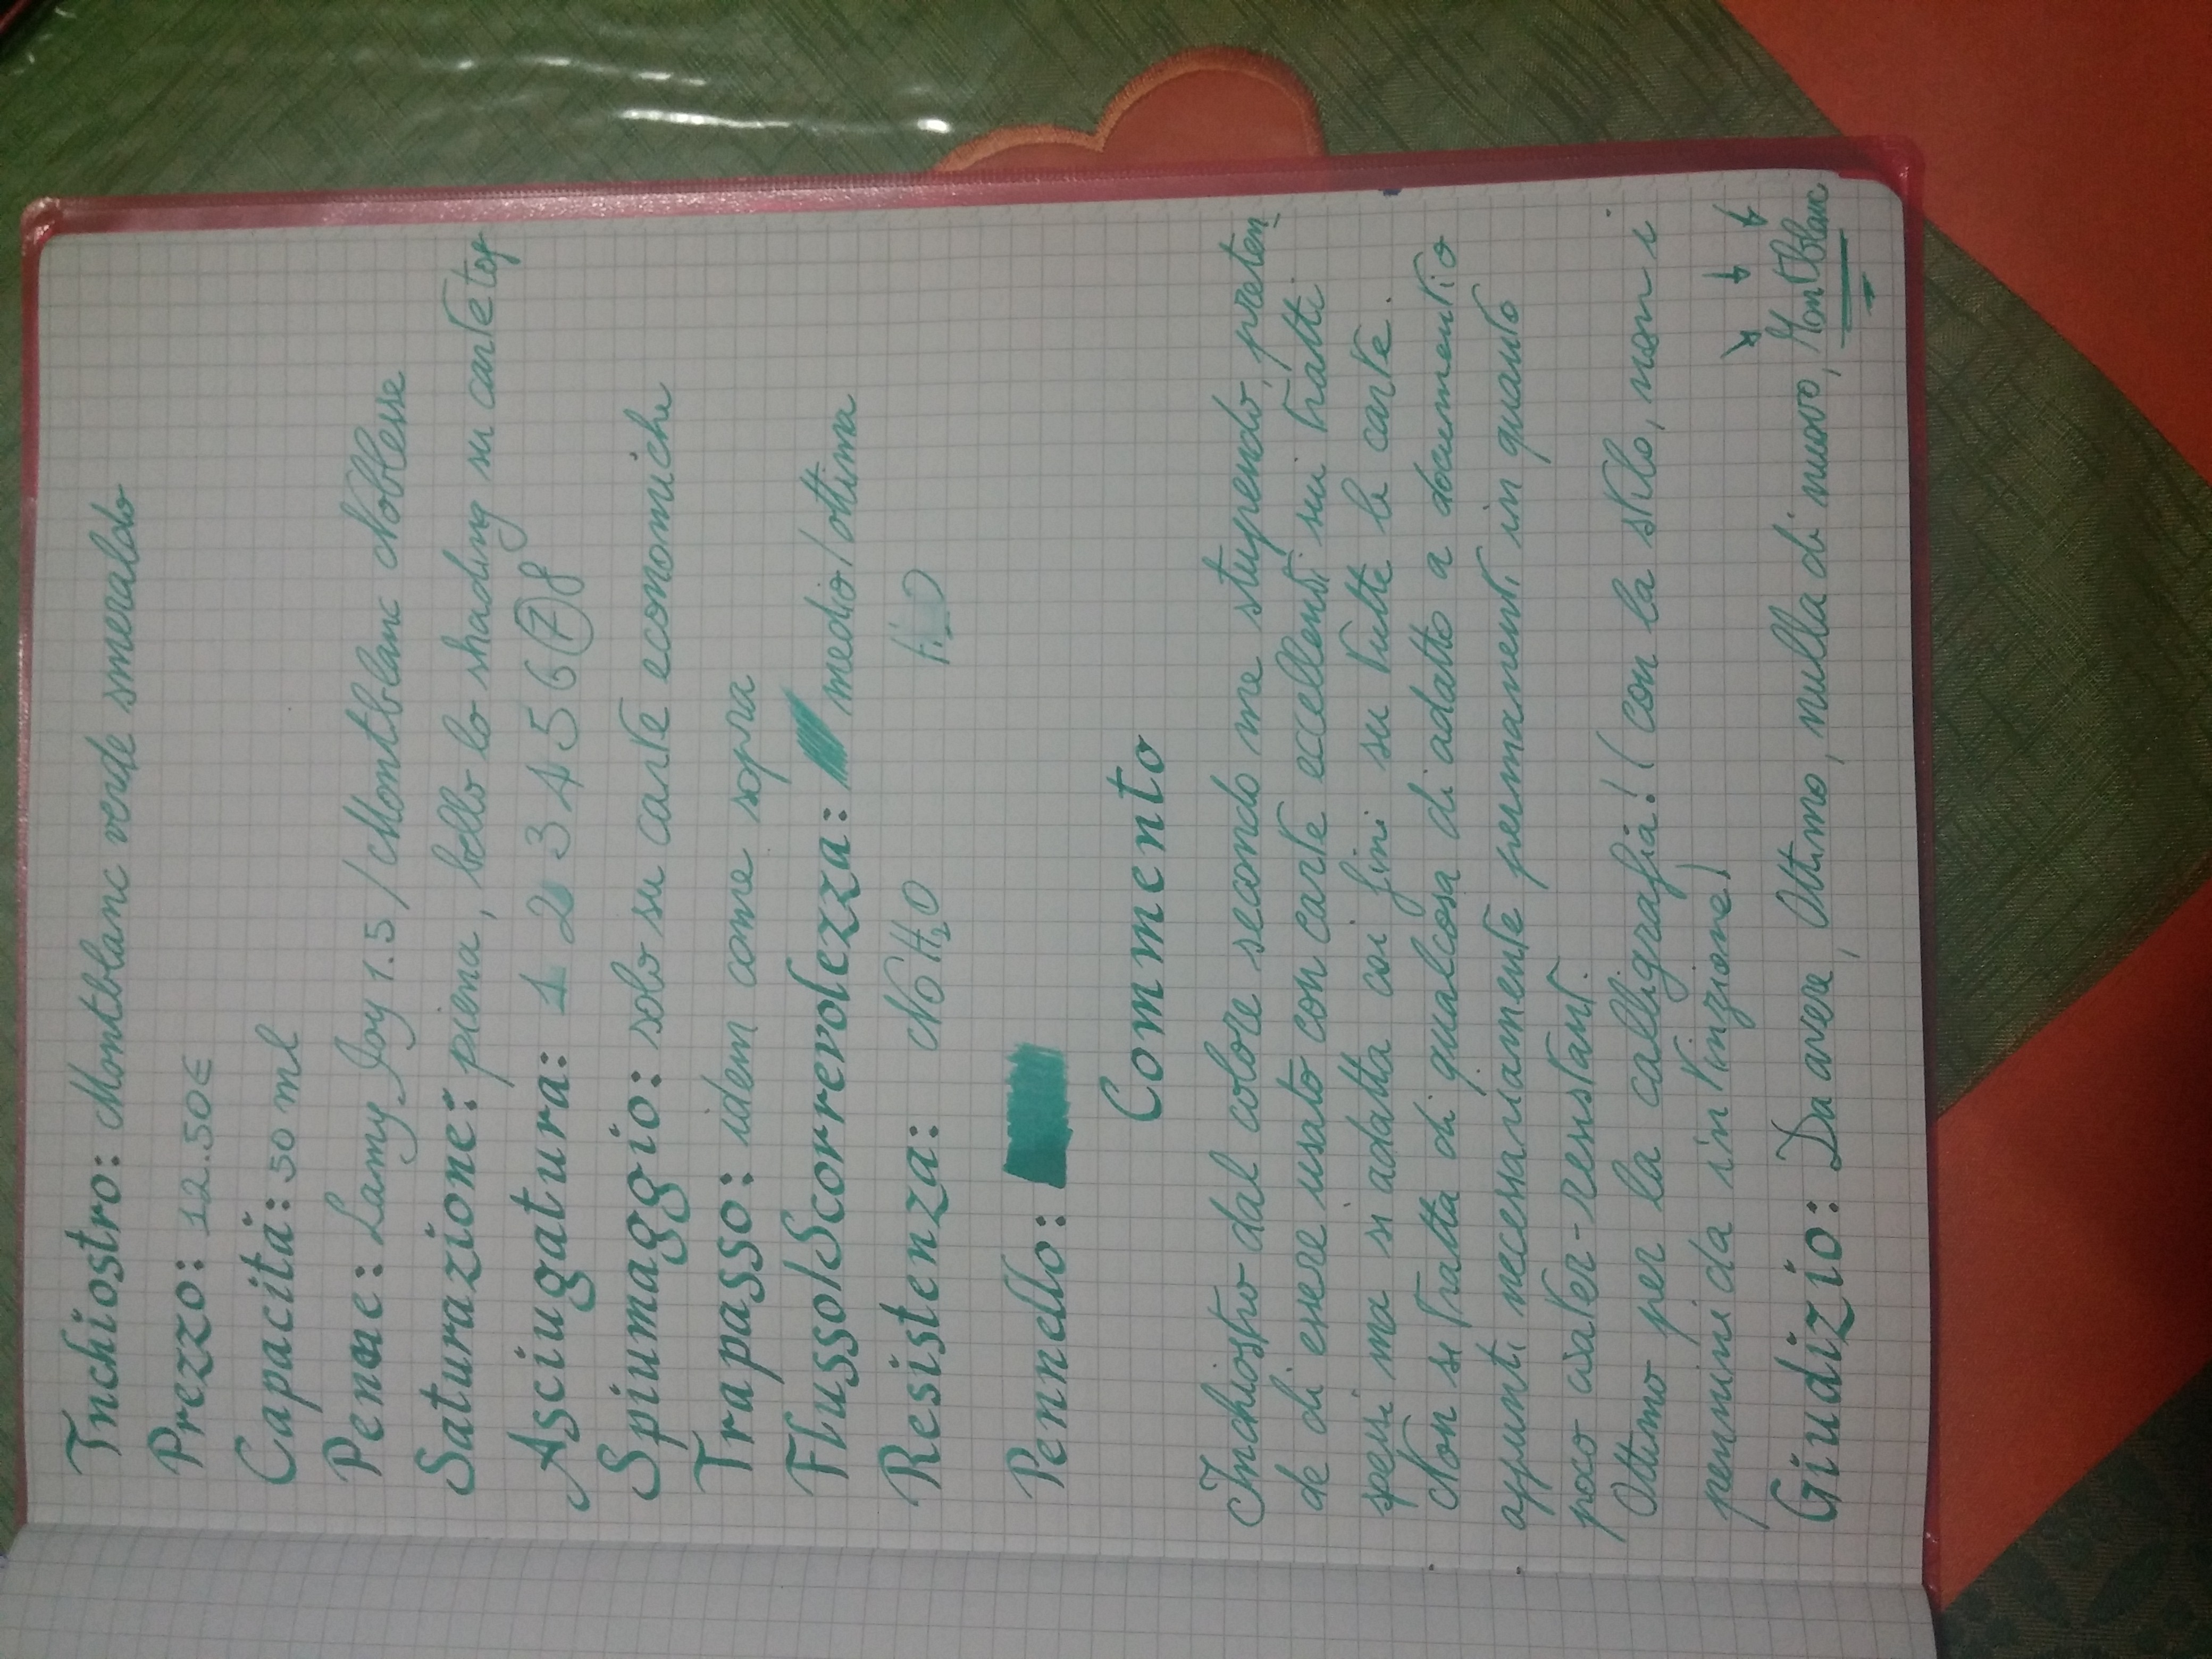 Inchiostro: Montblanc verde smeraldo
Prezzo: 12.50€
Capacità: 50 ml
Penne: Lamy Joy 1.5 / Montblanc Noblesse
Saturazione: piena, bello lo shading su carte top
Asciugatura: 1 2 3 4 5 6 7 8
Spiumaggio: solo su carte economiche
Trapasso: idem come sopra
Flusso/Scorrevolezza: medio/ottima
Resistenza: No H₂O H₂O
Pennello:
Commento
Inchiostro dal colore secondo me stupendo, preten
de di essere usato con carte eccellenti sui tratti
spessi ma si adatta coi fini su tutte le carte.
Non si tratta di qualcosa di adatto a documenti o
appunti necessariamente permanenti in quanto
poco water-resistant.
Ottimo per la calligrafia! (con la stilo, non i
pennini da intinzione)
Giudizio: Da avere, Ottimo, nulla di nuovo, Montblanc